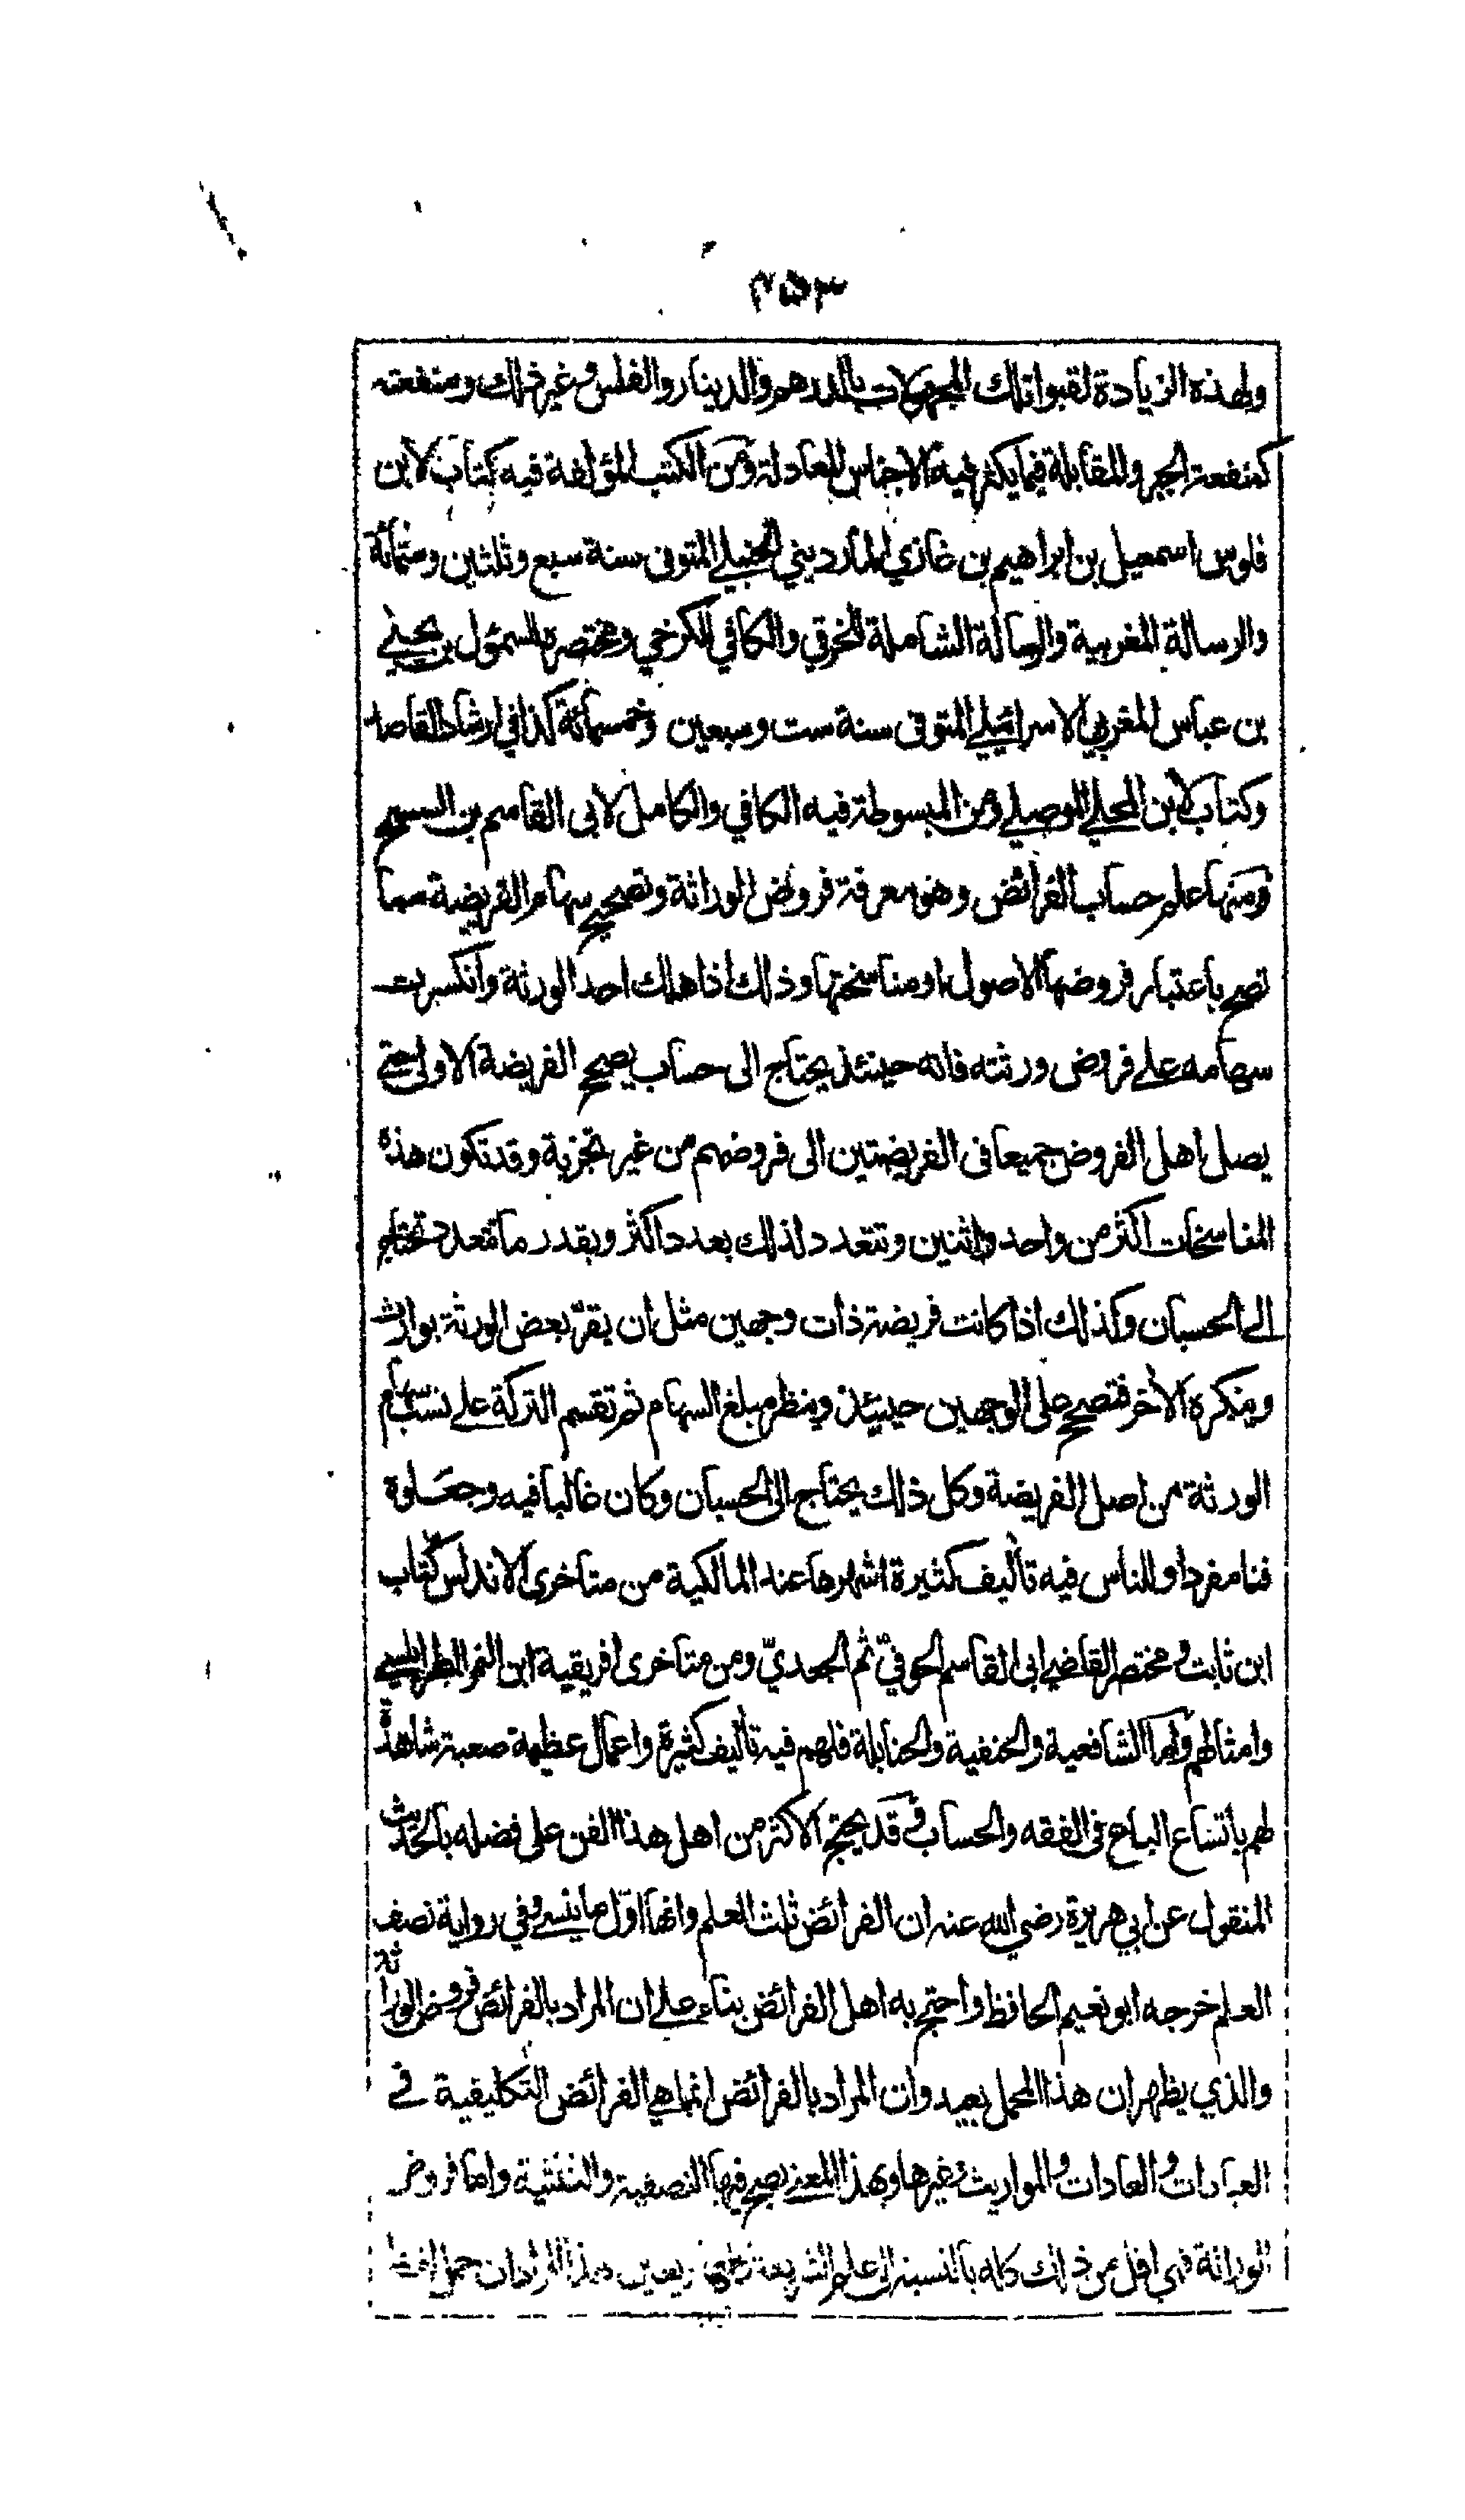 ٤٥٣
ولهذه الزيادة لقبوا تلك المجهولات بالدرهم والدينار والفلس وغير ذلك ومنفعته
كمنفعة الجبر والمقابلة فيما يكثر فيه الاجناس المعادلة ومن الكتب المؤلفة فيه كتاب لابن
فلوس اسمعيل بن ابراهيم بن غازي المارديني الحنبلي المتوفى سنة سبع وثلثين وستمائة
والرسالة المغربية والرسالة الشاملة للخرقي والكافي للكرخي ومختصره للسمؤل بن يحيى
بن عباس المغربي الاسرائيلي المتوفى سنة ست وسبعين وخمسمائة كذا في ارشاد القاصد
وكتاب لابن المحلي الموصلي ومن المبسوطة فيه الكافي والكامل لابى القاسم بن السمح
ومنها علم حساب الفرائض وهو معرفة فروض الوراثة وتصحيح سهام الفريضة مما
تصح باعتبار فروضها الاصول او مناسختها وذلك اذا هلك احد الورثة وانكسرت
سهامه على فروض ورثته فانه حينئذ يحتاج الى حساب يصحح الفريضة الاولى حتى
يصل اهل الفروض جميعا فى الفريضتين الى فروضهم من غير تجزية وقد تكون هذه
المناسخات اكثر من واحد واثنين وتتعدد لذلك بعدد اكثر وبقدر ما تعدد تحتاج
الى الحسبان وكذلك اذا كانت فريضة ذات وجهين مثل ان يقر بعض الورثة بوارث
وينكره الآخر فتصحح على الوجهين حينئذ وينظر مبلغ السهام ثم تقسم التركة على نسب سهام
الورثة من اصل الفريضة وكل ذلك يحتاج الى الحسبان وكان غالبا فيه وجعلوه
فنا مفردا وللناس فيه تأليف كثيرة اشهرها عند المالكية من متاخرى الاندلس كتاب
ابن ثابت ومختصر القاضي ابى القاسم الحوفيّ ثم الجعديّ ومن متاخرى افريقية ابن النمر الطرابلسي
وامثالهم واما الشافعية والحنفية والحنابلة فلهم فيه تأليف كثيرة واعمال عظيمة صعبة شاهدة
لهم باتساع الباع فى الفقه والحساب وقد يحتج الاكثر من اهل هذا الفن على فضله بالحديث
المنقول عن ابي هريرة رضي الله عنه ان الفرائض ثلث العلم وانها اوّل ما ينسى وفي رواية نصف
العلم خرجه ابو نعيم الحافظ واحتج به اهل الفرائض بناء على ان المراد بالفرائض فروض الوراثة
والذي يظهر ان هذا المحمل بعيد وان المراد بالفرائض انما هي الفرائض التكليفية في
العبادات والعادات والمواريث وغيرها وبهذا المعنى يصح فيها النصفية والثلثية واما فروض
الوراثة فهى اقل من ذلك كله بالنسبة الى علم الشريعة كلها يعين هذا المراد ان حمل لفظ